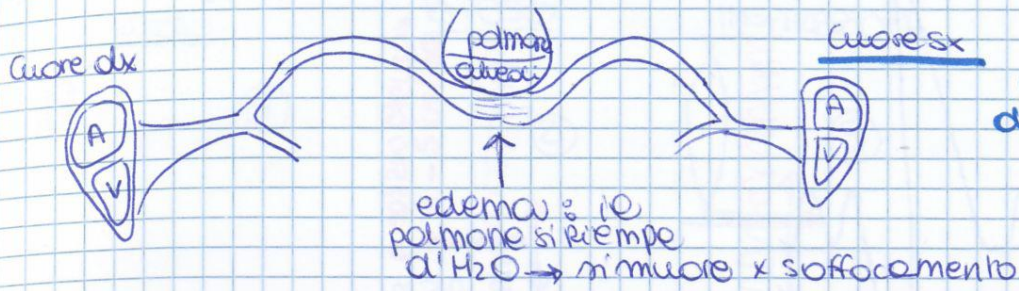 Cuore dx
polmoni
alveoli
Cuore sx
A
V
A
V
d
edema: il
polmone si riempe
d'H2O → si muore x soffocamento